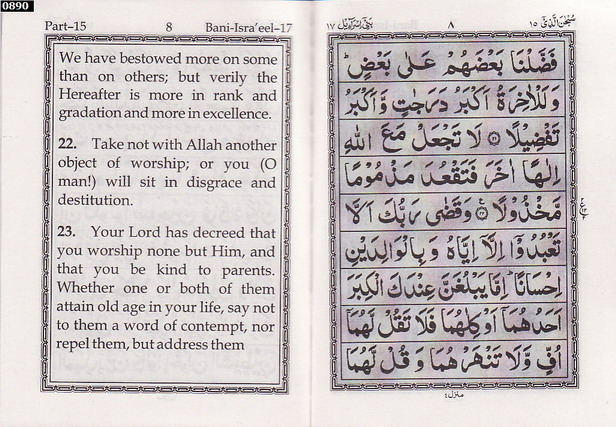 0890
Part–15 8 Bani-Isra'eel–17
We have bestowed more on some
than on others; but verily the
Hereafter is more in rank and
gradation and more in excellence.
22. Take not with Allah another
object of worship; or you (O
man!) will sit in disgrace and
destitution.
23. Your Lord has decreed that
you worship none but Him, and
that you be kind to parents.
Whether one or both of them
attain old age in your life, say not
to them a word of contempt, nor
repel them, but address them
سُبْحٰنَ الَّذِیْٓ ۱۵ ۸ بَنِیْٓ اِسْرَآءِیْل ۱۷
فَضَّلْنَا بَعْضَهُمْ عَلٰى بَعْضٍ ؕ
وَلَلْاٰخِرَةُ اَكْبَرُ دَرَجٰتٍ وَّاَكْبَرُ
تَفْضِيْلًا ۝۲۱ لَا تَجْعَلْ مَعَ اللّٰهِ
اِلٰهًا اٰخَرَ فَتَقْعُدَ مَذْمُوْمًا
مَّخْذُوْلًا ۝۲۲ وَقَضٰى رَبُّكَ اَلَّا
تَعْبُدُوْٓا اِلَّآ اِيَّاهُ وَ بِالْوَالِدَيْنِ
اِحْسَانًا ؕ اِمَّا يَبْلُغَنَّ عِنْدَكَ الْكِبَرَ
اَحَدُهُمَآ اَوْ كِلٰهُمَا فَلَا تَقُلْ لَّهُمَآ
اُفٍّ وَّلَا تَنْهَرْهُمَا وَ قُلْ لَّهُمَا
منزل ۴